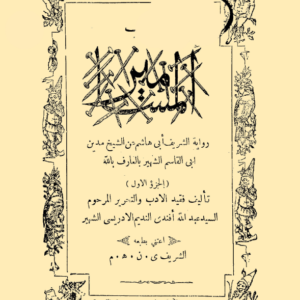 المسامير
رواية الشريف أبي هاشم بن الشيخ مدين
ابي القاسم الشهير بالعارف بالله
(الجزؤ الاول)
تأليف فقيد الادب والتحرير المرحوم
السيد عبد الله أفندي النديم الادريسي الشهير
اعتنى بطبعه
الشريف ى . ن . ه . م